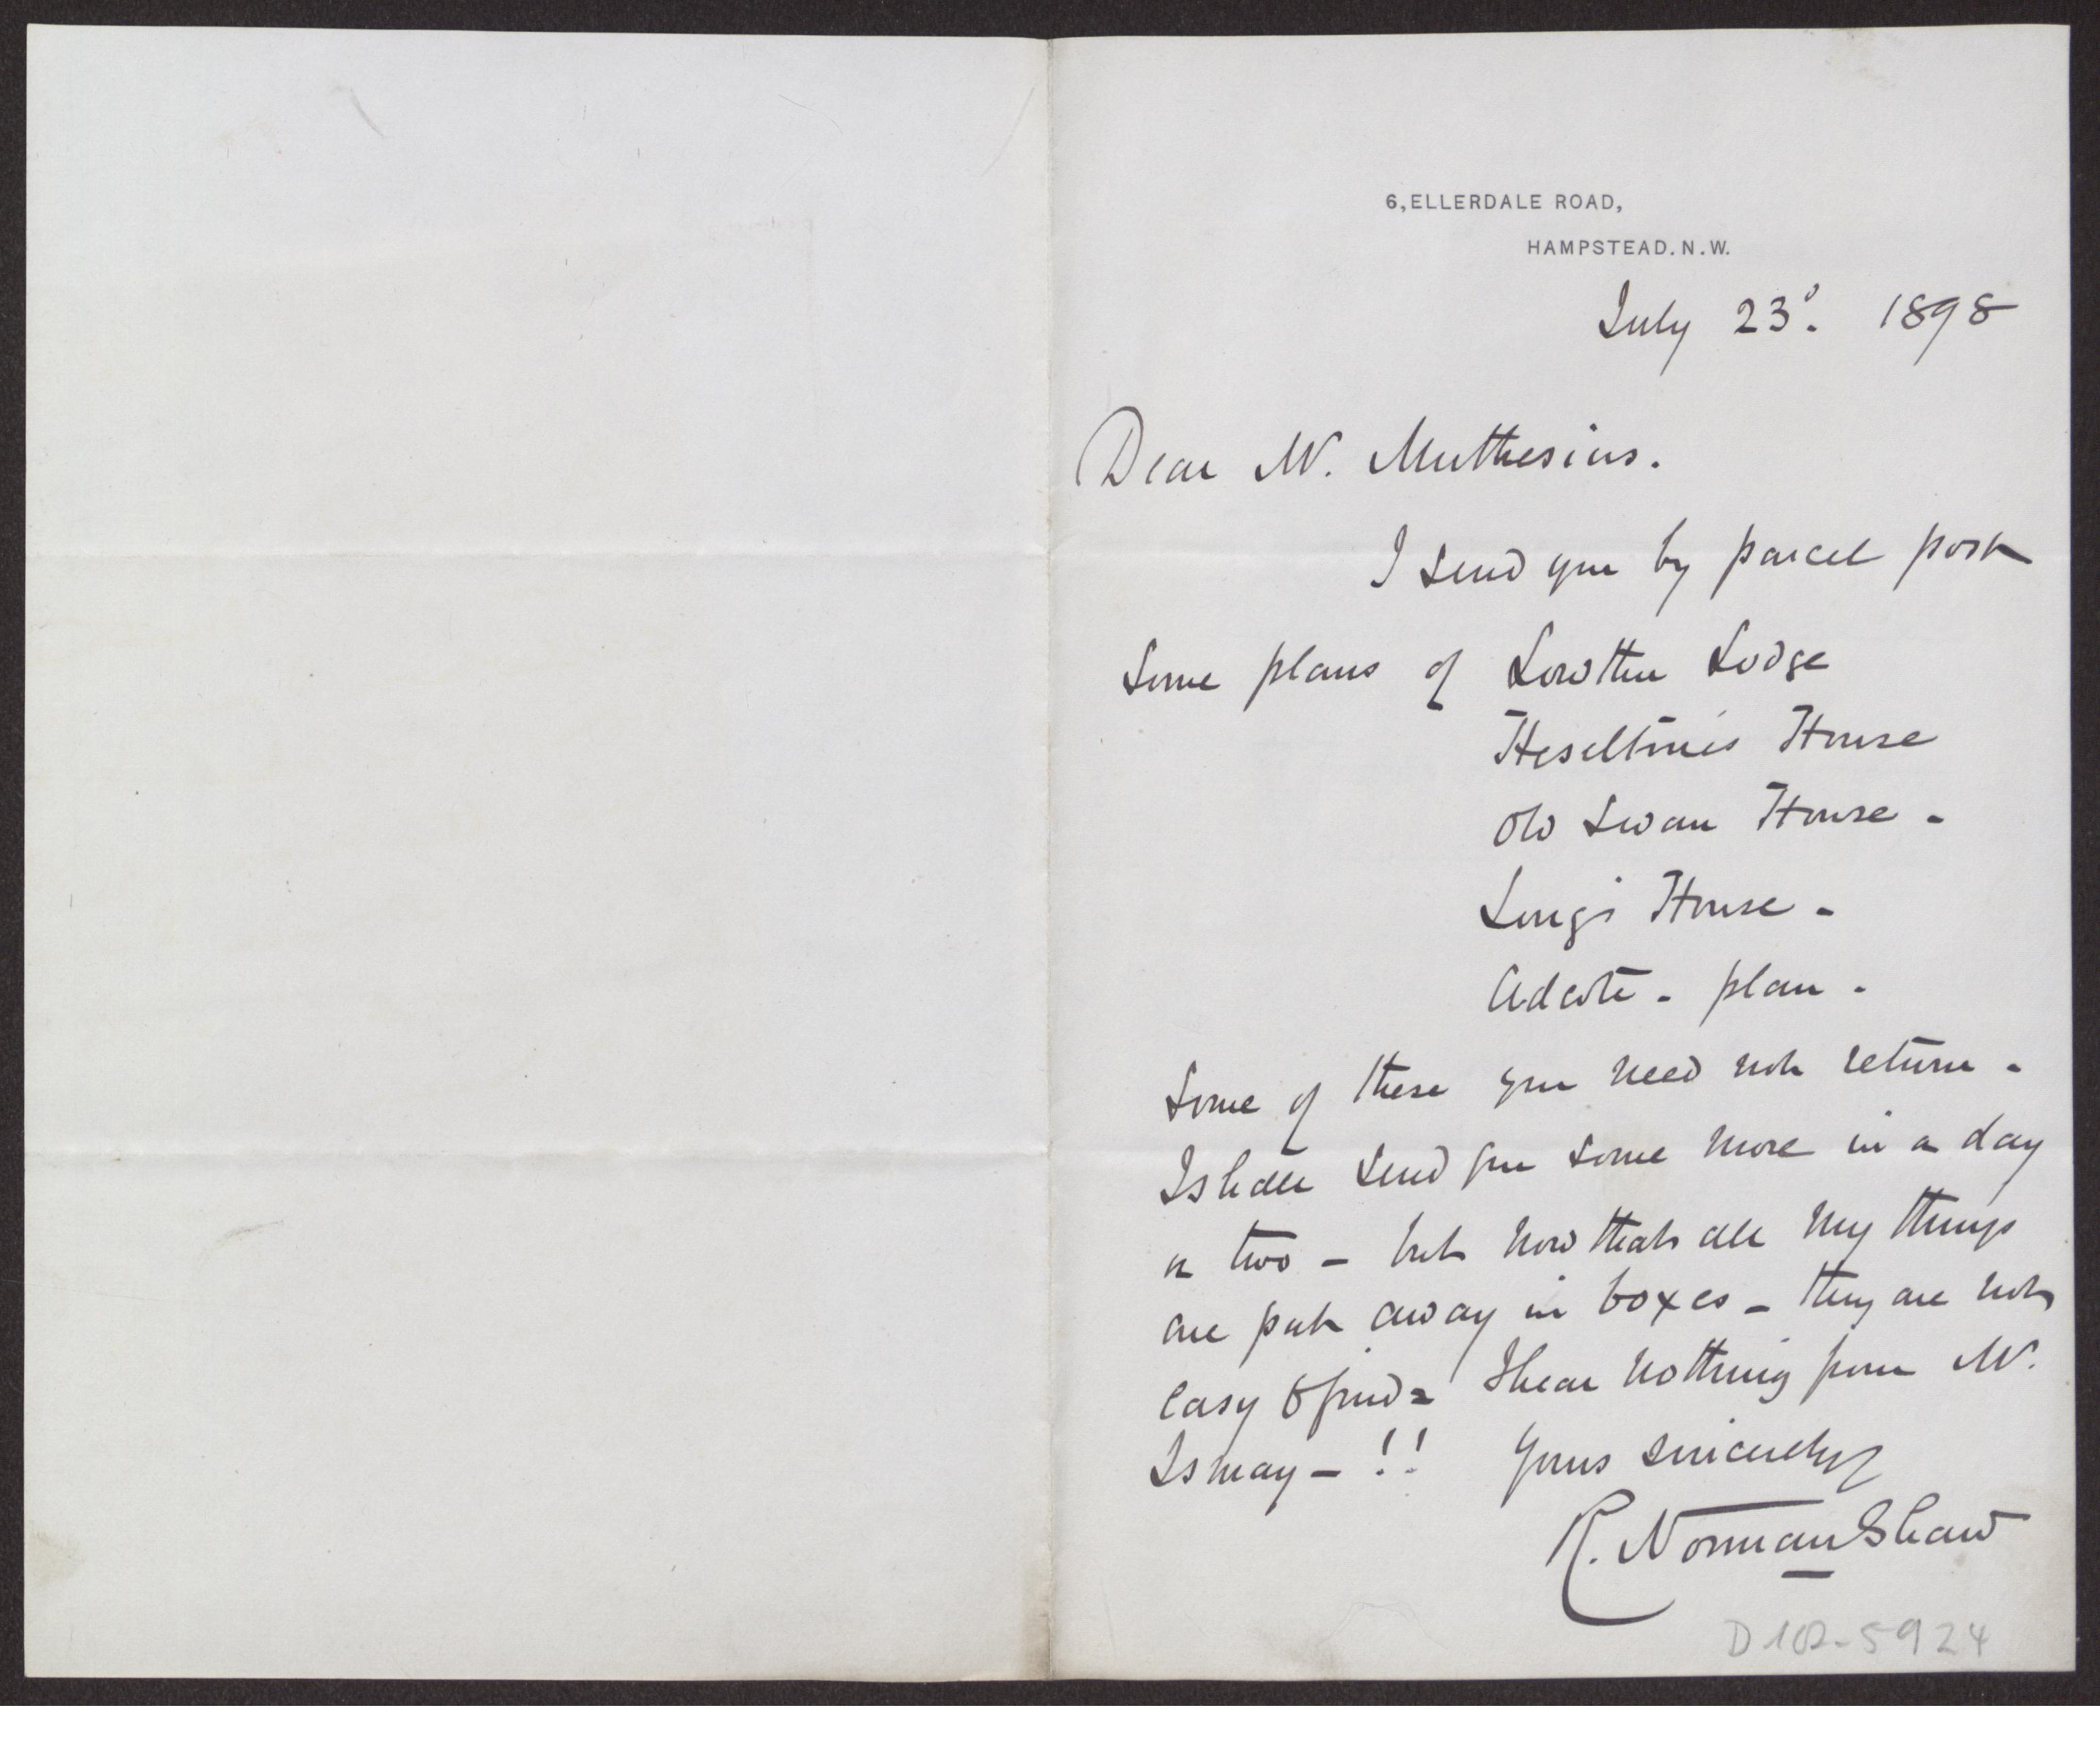 6, ELLERDALE ROAD,
HAMPSTEAD. N.W.
July 23d. 1898
Dear Mr. Muthesius.
I send you by parcel post
some plans of Lowther Lodge
Heseltine's House
Old Swan House -
Long's House -
Adcote - plan -
Some of these you need not return -
I shall send you some more in a day
or two - but now that all my things
are put away in boxes - they are not
easy to find = I hear nothing from Mr.
Ismay - !! Yours sincerely
R. Norman Shaw
D 102-5924